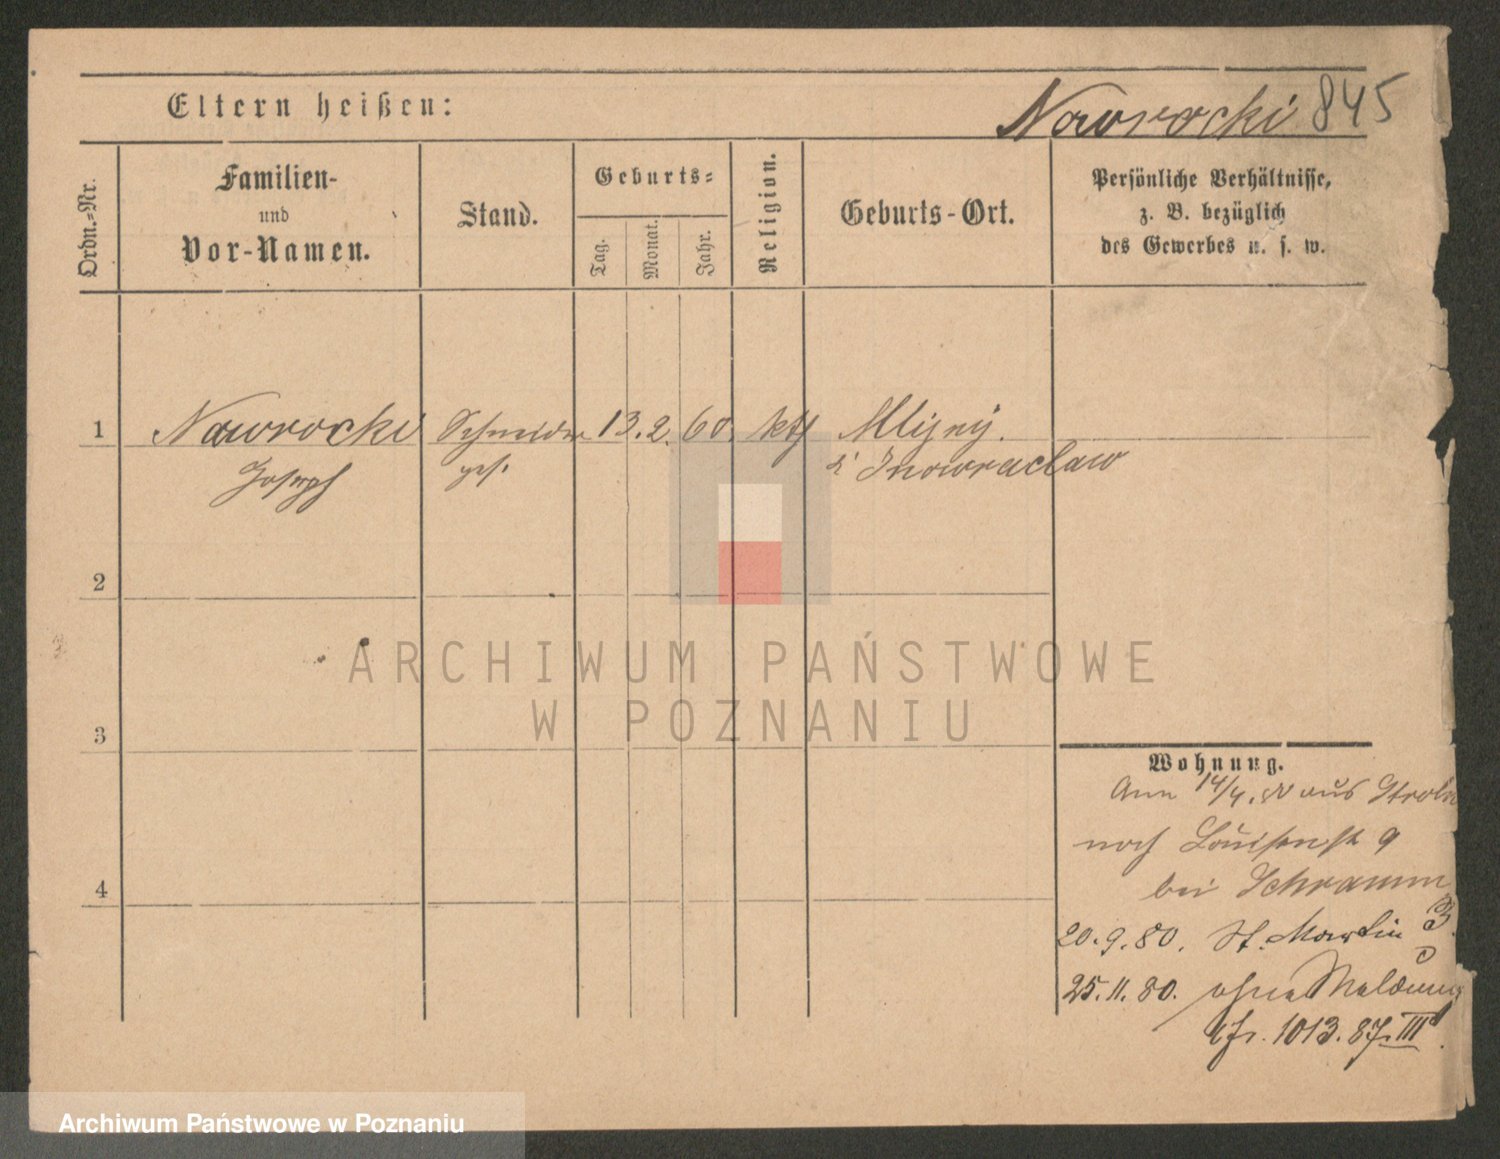 Eltern heißen:
Nawrocki 845
Ordn.-Nr.
Familien-
und
Vor-Namen.
Stand.
Geburts-
Tag.
Monat.
Jahr.
Religion.
Geburts-Ort.
Persönliche Verhältnisse,
z. B. bezüglich
des Gewerbes u. s. w.
1 Nawrocki Schneider 13. 2. 60. kth
Joseph ges. Inowraclaw
2
3
4
Wohnung.
14/4. 80 aus
nach Louisenstr 9
bei Schramm
20. 9. 80. St. Martin 3
25. 11. 80. ohne Meldung
1013. 87. III
ARCHIWUM PAŃSTWOWE
W POZNANIU
Archiwum Państwowe w Poznaniu